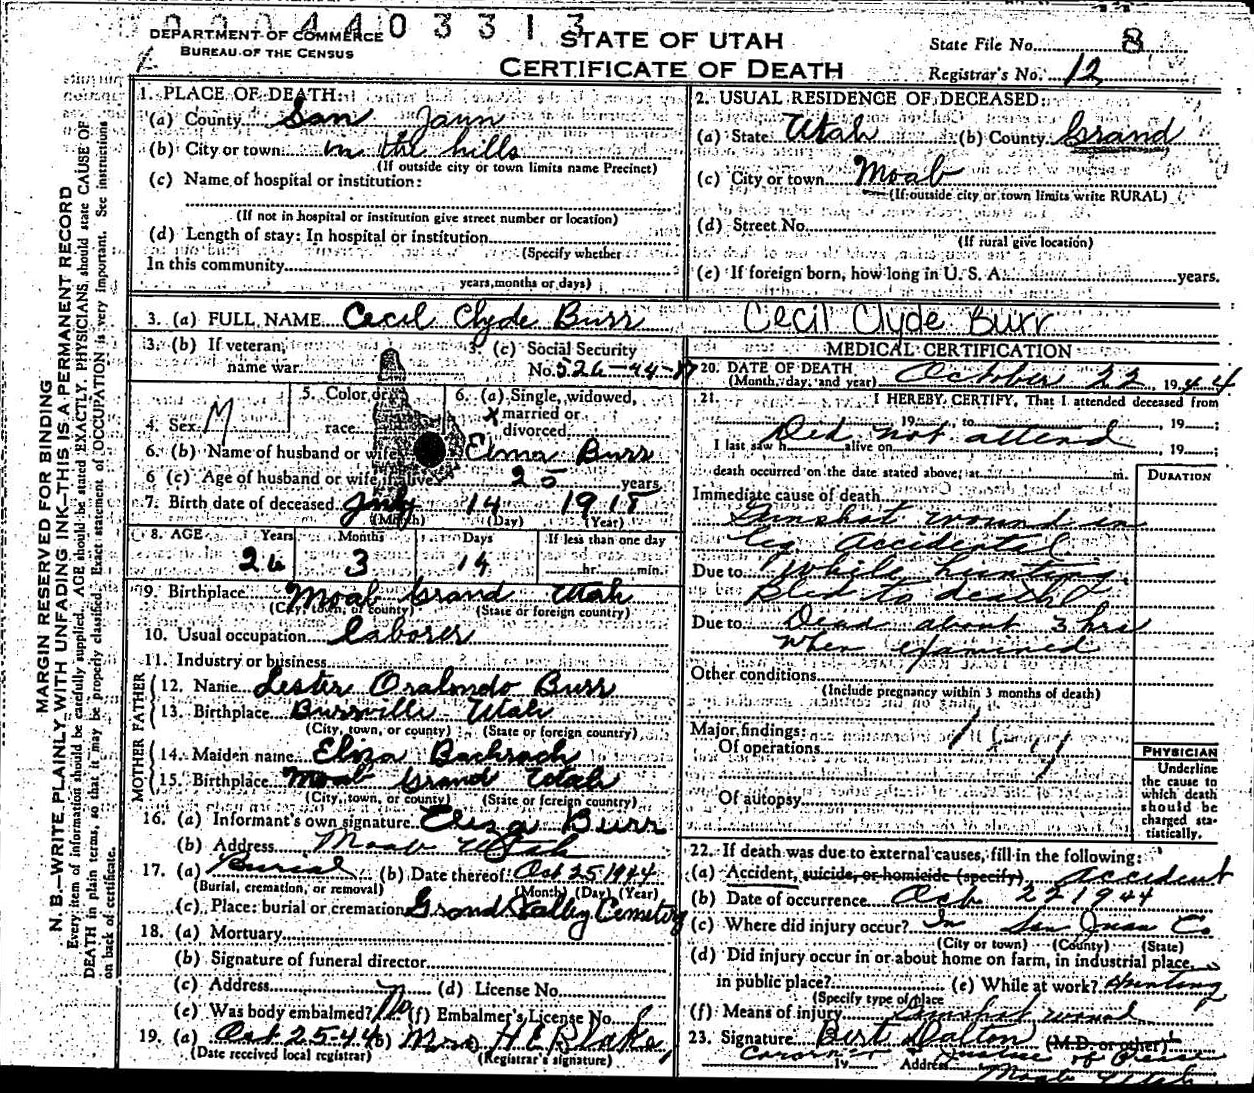 0004403313
DEPARTMENT OF COMMERCE
BUREAU OF THE CENSUS
STATE OF UTAH
CERTIFICATE OF DEATH
State File No. 8
Registrar's No. 12
MARGIN RESERVED FOR BINDING
N. B.—WRITE PLAINLY WITH UNFADING INK—THIS IS A PERMANENT RECORD
Every item of information should be carefully supplied. AGE should be stated EXACTLY. PHYSICIANS should state CAUSE OF
DEATH in plain terms, so that it may be properly classified. Exact statement of OCCUPATION is very important. See instructions
on back of certificate.
1. PLACE OF DEATH:
(a) County San Jaun
(b) City or town in the hills
(If outside city or town limits name Precinct)
(c) Name of hospital or institution:
(If not in hospital or institution give street number or location)
(d) Length of stay: In hospital or institution
(Specify whether
In this community
years, months or days)
2. USUAL RESIDENCE OF DECEASED:
(a) State Utah (b) County Grand
(c) City or town Moab
(If outside city or town limits write RURAL)
(d) Street No.
(If rural give location)
(e) If foreign born, how long in U. S. A. years.
3. (a) FULL NAME Cecil Clyde Burr Cecil Clyde Burr
3. (b) If veteran,
name war
3. (c) Social Security
No. 526-44-
4. Sex M
5. Color or
race
6. (a) Single, widowed,
x married or
divorced
6. (b) Name of husband or wife Elma Burr
6 (c) Age of husband or wife, if alive 25 years
7. Birth date of deceased July 14 1918
(Month) (Day) (Year)
8. AGE Years Months Days If less than one day
26 3 14 hr. min.
9. Birthplace Moab Grand Utah
(City, town, or county) (State or foreign country)
10. Usual occupation laborer
11. Industry or business
FATHER
12. Name Lester Oralondo Burr
13. Birthplace Burrville Utah
(City, town, or county) (State or foreign country)
MOTHER
14. Maiden name Eliza Bachrach
15. Birthplace Moab Grand Utah
(City, town, or county) (State or foreign country)
16. (a) Informant's own signature Eliza Burr
(b) Address Moab Utah
17. (a) Burial (b) Date thereof Oct 25 1944
(Burial, cremation, or removal) (Month) (Day) (Year)
(c) Place: burial or cremation Grand Valley Cemetery
18. (a) Mortuary
(b) Signature of funeral director
(c) Address (d) License No.
(e) Was body embalmed? No (f) Embalmer's License No.
19. (a) Oct 25-44 (b) Mrs H E Blake
(Date received local registrar) (Registrar's signature)
MEDICAL CERTIFICATION
20. DATE OF DEATH
(Month, day, and year) October 22, 1944
21. I HEREBY CERTIFY, That I attended deceased from
19 to 19 ;
Did not attend
I last saw h alive on , 19 ;
death occurred on the date stated above, at m.
DURATION
Immediate cause of death
Gunshot wound in
leg accidental
Due to While hunting
Bled to death
Due to Dead about 3 hrs
when examined
Other conditions
(Include pregnancy within 3 months of death)
Major findings:
Of operations
Of autopsy
PHYSICIAN
Underline
the cause to
which death
should be
charged sta-
tistically.
22. If death was due to external causes, fill in the following:
(a) Accident, suicide, or homicide (specify) accident
(b) Date of occurrence Oct 22 1944
(c) Where did injury occur? In San Juan Co
(City or town) (County) (State)
(d) Did injury occur in or about home on farm, in industrial place,
in public place? (e) While at work? Hunting
(Specify type of place
(f) Means of injury Gunshot wound
23. Signature Bert Dalton (M.D. or other)
Coroner Justice of Peace
Address Moab Utah